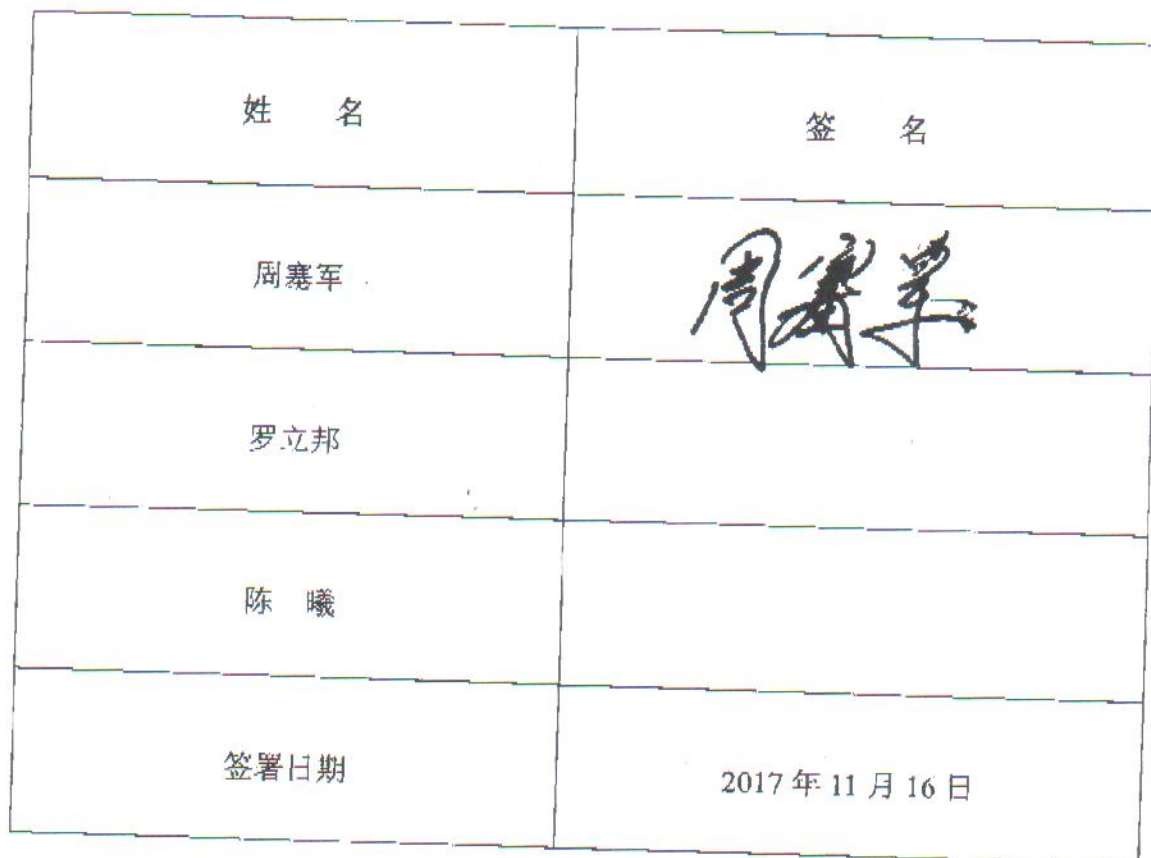 姓 名 签 名
周骞军 周骞军
罗立邦
陈 曦
签署日期 2017 年 11 月 16 日